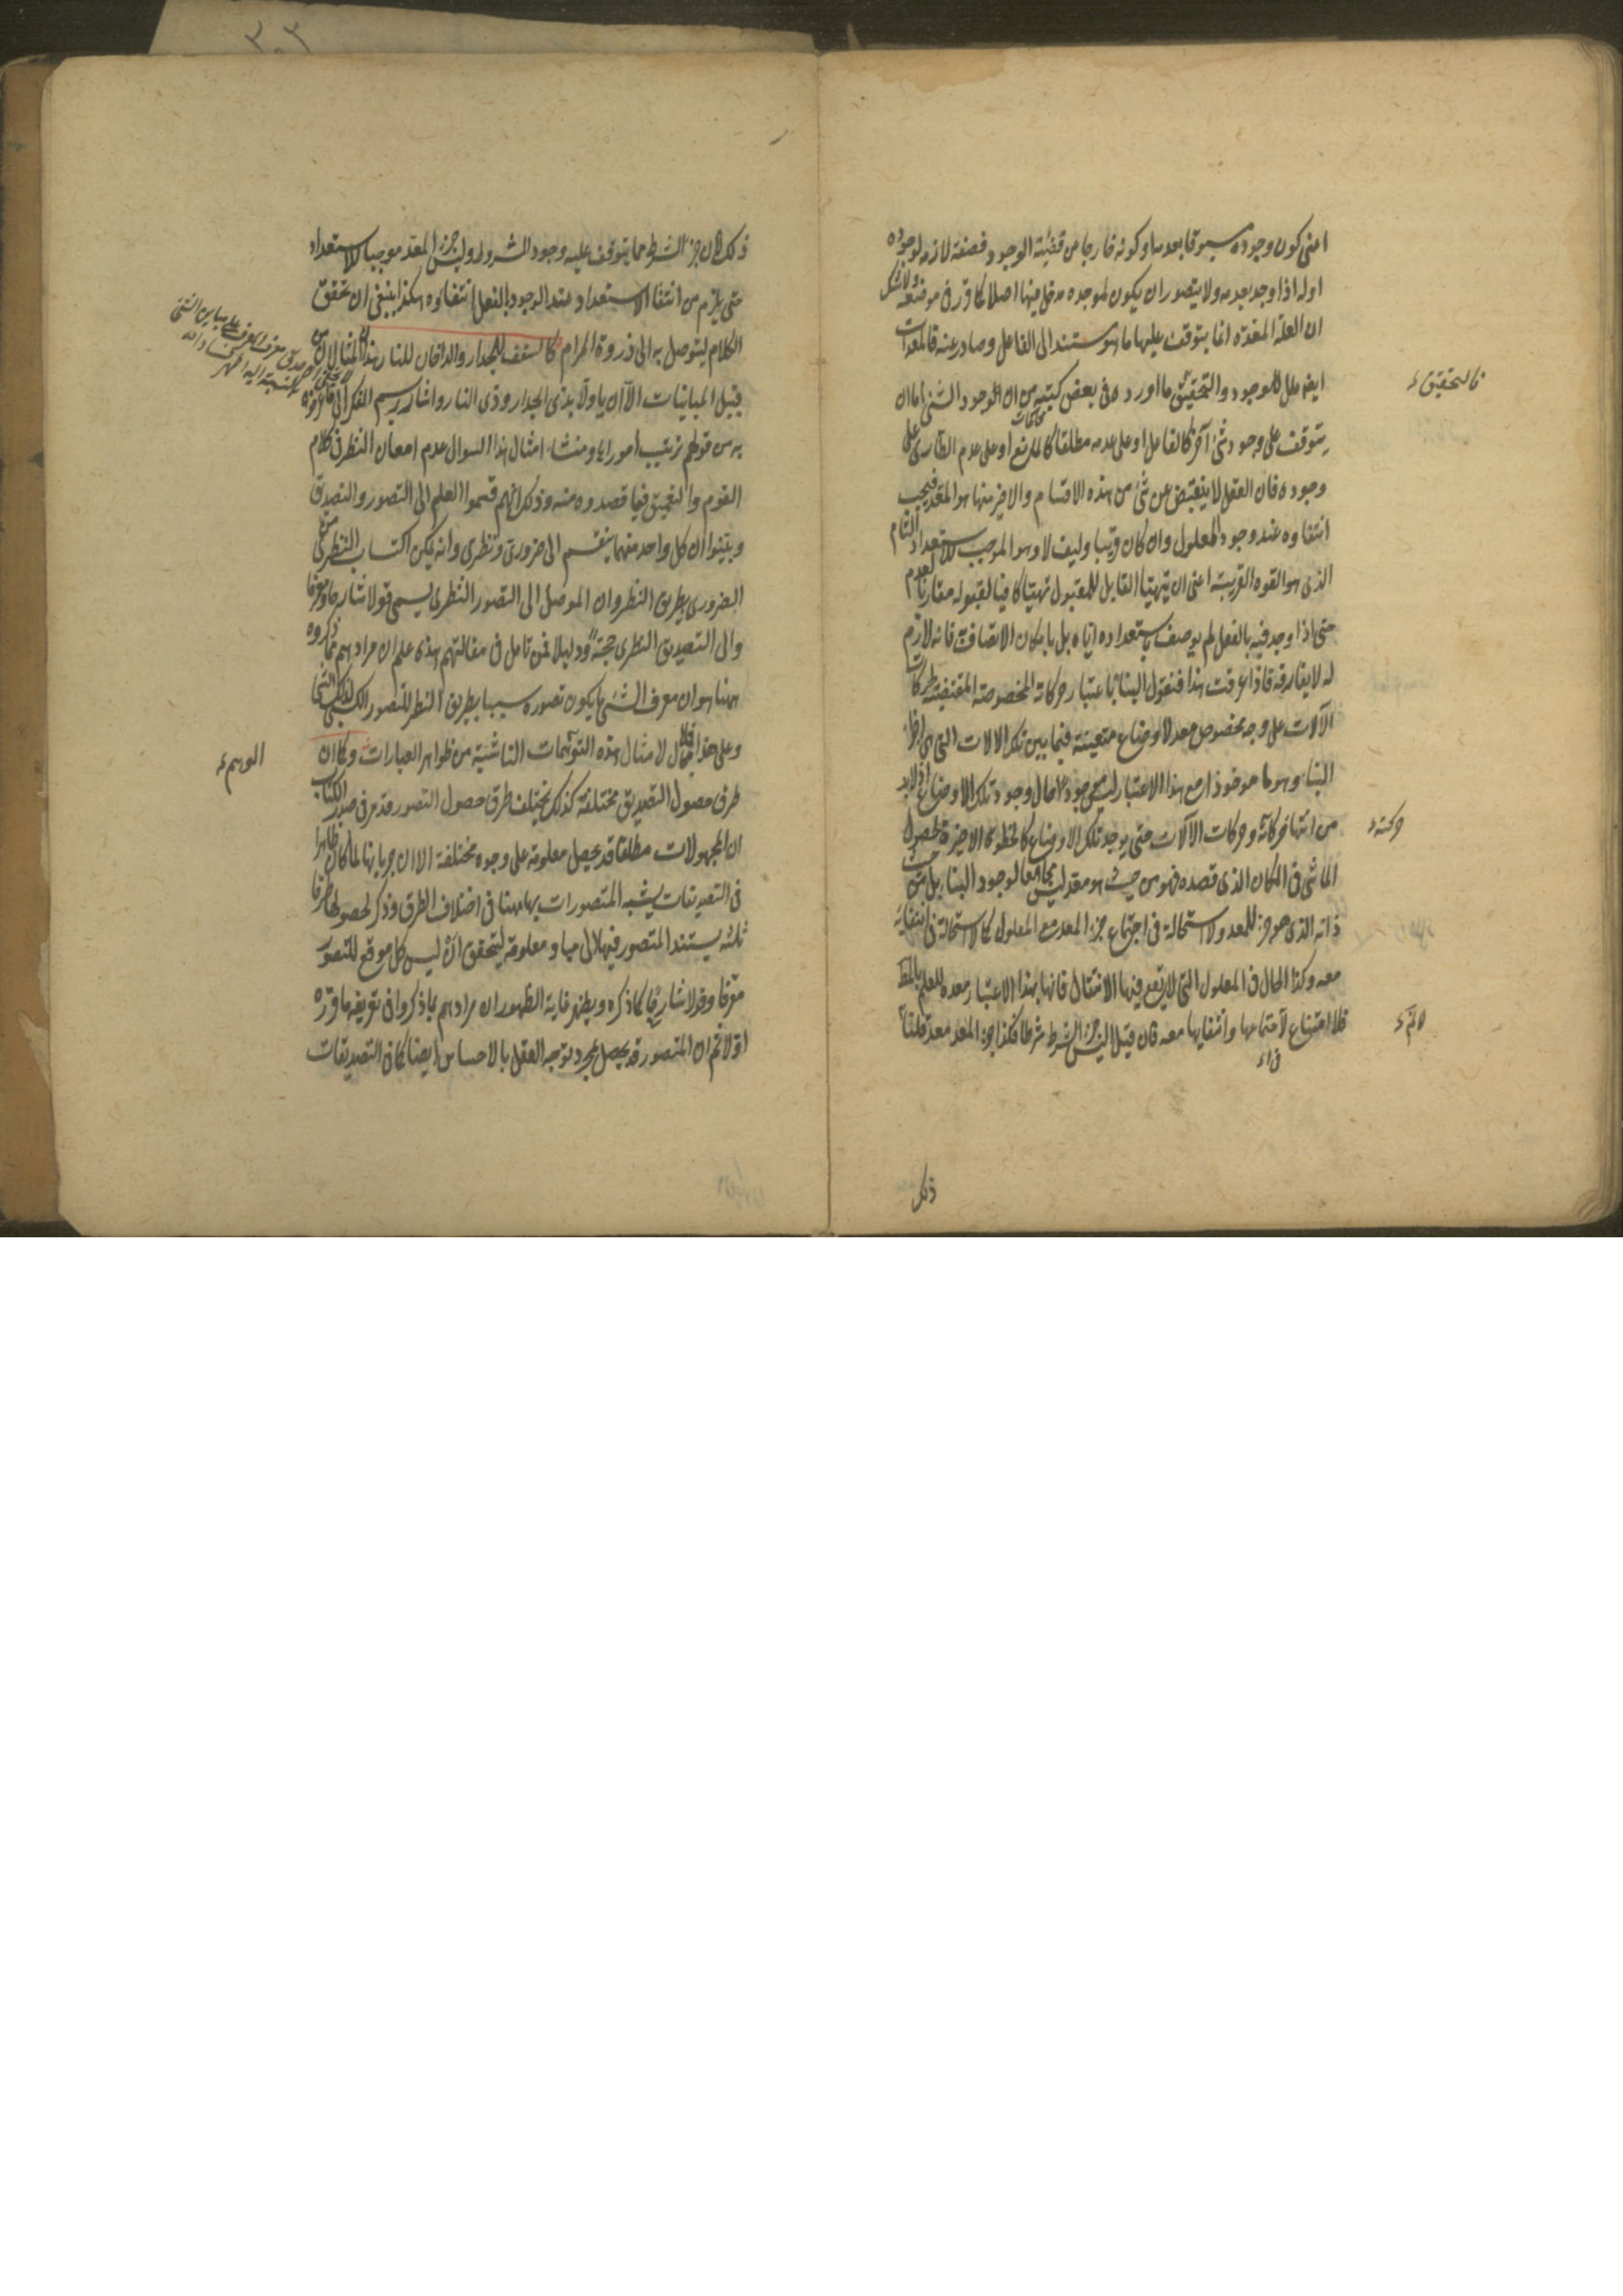 اعنى كون وجوده مسبوقا بعدمه او كونه خارجا من قضية الوجود فصفة لازمة لوجوده
اوله اذا وجد بعدمه ولا يتصور ان يكون لموجده مدخل فيها اصلا كما قرر فى موضعه ولا شك
ان العلة المعدة انما يتوقف عليها ما هو مستند الى الفاعل وصادر عنه فالمعدات
ايضا علل للوجود والتحقيق ما اورده فى بعض كتبه من ان الوجود الشىء اما ان
يتوقف على وجود شىء آخر كالفاعل او على عدمه مطلقا كالمانع او على عدم الطارى على
وجوده فان العقل لا ينقبض عن شىء من هذه الاقسام والاخير منها هو المعد فيجب
انتفاؤه عند وجود المعلول وان كان قريبا وليف لا وهو الموجب للاستعداد التام
الذى هو القوة القريبة اعنى ان يتهيأ القابل للمقبول تهيئا كافيا لقبوله مقارنا لعدم
حتى اذا وجد فيه بالفعل لم يوصف باستعداده اياه بل بامكان الاتصاف فانه لازم
له لا يفارقه فاذا عرفت هذا فنقول البناء باعتبار حركاته المخصوصة المقتضية لحركات
الآلات على وجه مخصوص معد لاوضاع متعينة فيما بين تلك الالات التى هى اجزاء
البناء وهو ماخوذا مع هذا الاعتبار ليس موجودا حال وجود تلك الاوضاع اذ لابد
من انتهاء حركاته وحركات الآلات حتى يوجد تلك الاوضاع كالخطوة الاخيرة لحصول
الماشى فى المكان الذى قصده فهو من حيث هو معد ليس مجامعا لوجود البناء بل من حيث
ذاته الذى هو جزء للمعد ولا استحالة فى اجتماع جزء المعد مع المعلول كما لا استحالة فى انتفائه
معه وكذا الحال فى المعلول التى لا يقع فيها الانتقال فانها بهذا الاعتبار معدة للعلم بالمط
فلا امتناع لاجتماعها وانتفايها معه فان قيل اليس جزء الشرط شرطا فكذا جزء المعد معد قلنا
فالتحقيق
حركته
ذلك
ذلك لان جزء الشرط مما يتوقف عليه وجود المشروط وليس جزء المعد موجبا للاستعداد
حتى يلزم من انتفاء الاستعداد عند الوجود بالفعل انتفاؤه هكذا ينبغى ان تحقق
الكلام ليتوصل به الى ذروة المرام كالسقف للجدار والدخان للنار هذان المثالان من
قبيل المباينات الا ان ياولا بذى الجدار وذى النار واشار رسم الفكر الى ما اورده
به من قولهم ترتيب امور اه ومنشاء امثال هذا السوال عدم امعان النظر فى كلام
القوم والتعميق فيما قصدوه منه وذلك انهم قسموا العلم الى التصور والتصديق
وبينوا ان كل واحد منهما ينقسم الى ضرورى ونظرى وانه يمكن اكتساب النظرى من
الضرورى بطريق النظر وان الموصل الى التصور النظرى يسمى قولا شارحا ومعرفا
والى التصديق النظرى حجة ودليلا فمن تامل فى مقالتهم هذه علم ان مرادهم مما ذكروه
ههنا هو ان معرف الشىء ما يكون تصوره سببا بطريق النظر للتصور الكسبى لذلك الشىء
وعلى هذا فلا مجال لامثال هذه التوهمات الناشئة من ظواهر العبارات وكما ان
طرق حصول التصديق مختلفة كذلك يختلف طرق حصول التصور قد مر فى صدر الكتاب
ان المجهولات مطلقا قد يحصل معلومة على وجوه مختلفة الا ان جريانها لما كان ظاهرا
فى التصديقات يشبه المتصورات بها ههنا فى اختلاف الطرق وذكر لحصولها طرقا
ثلثة يستند المتصور فيها الى مباد معلومة ليتحقق ان ليس كل موقع للتصور
معرفا وقولا شارحا كما ذكره ويظهر غاية الظهور ان مرادهم بما ذكروا فى تعريفه ما قرره
اولا ثم ان المتصور قد يحصل بمجرد توجه العقل بالاحساس ايضا كما فى التصديقات
الموسم